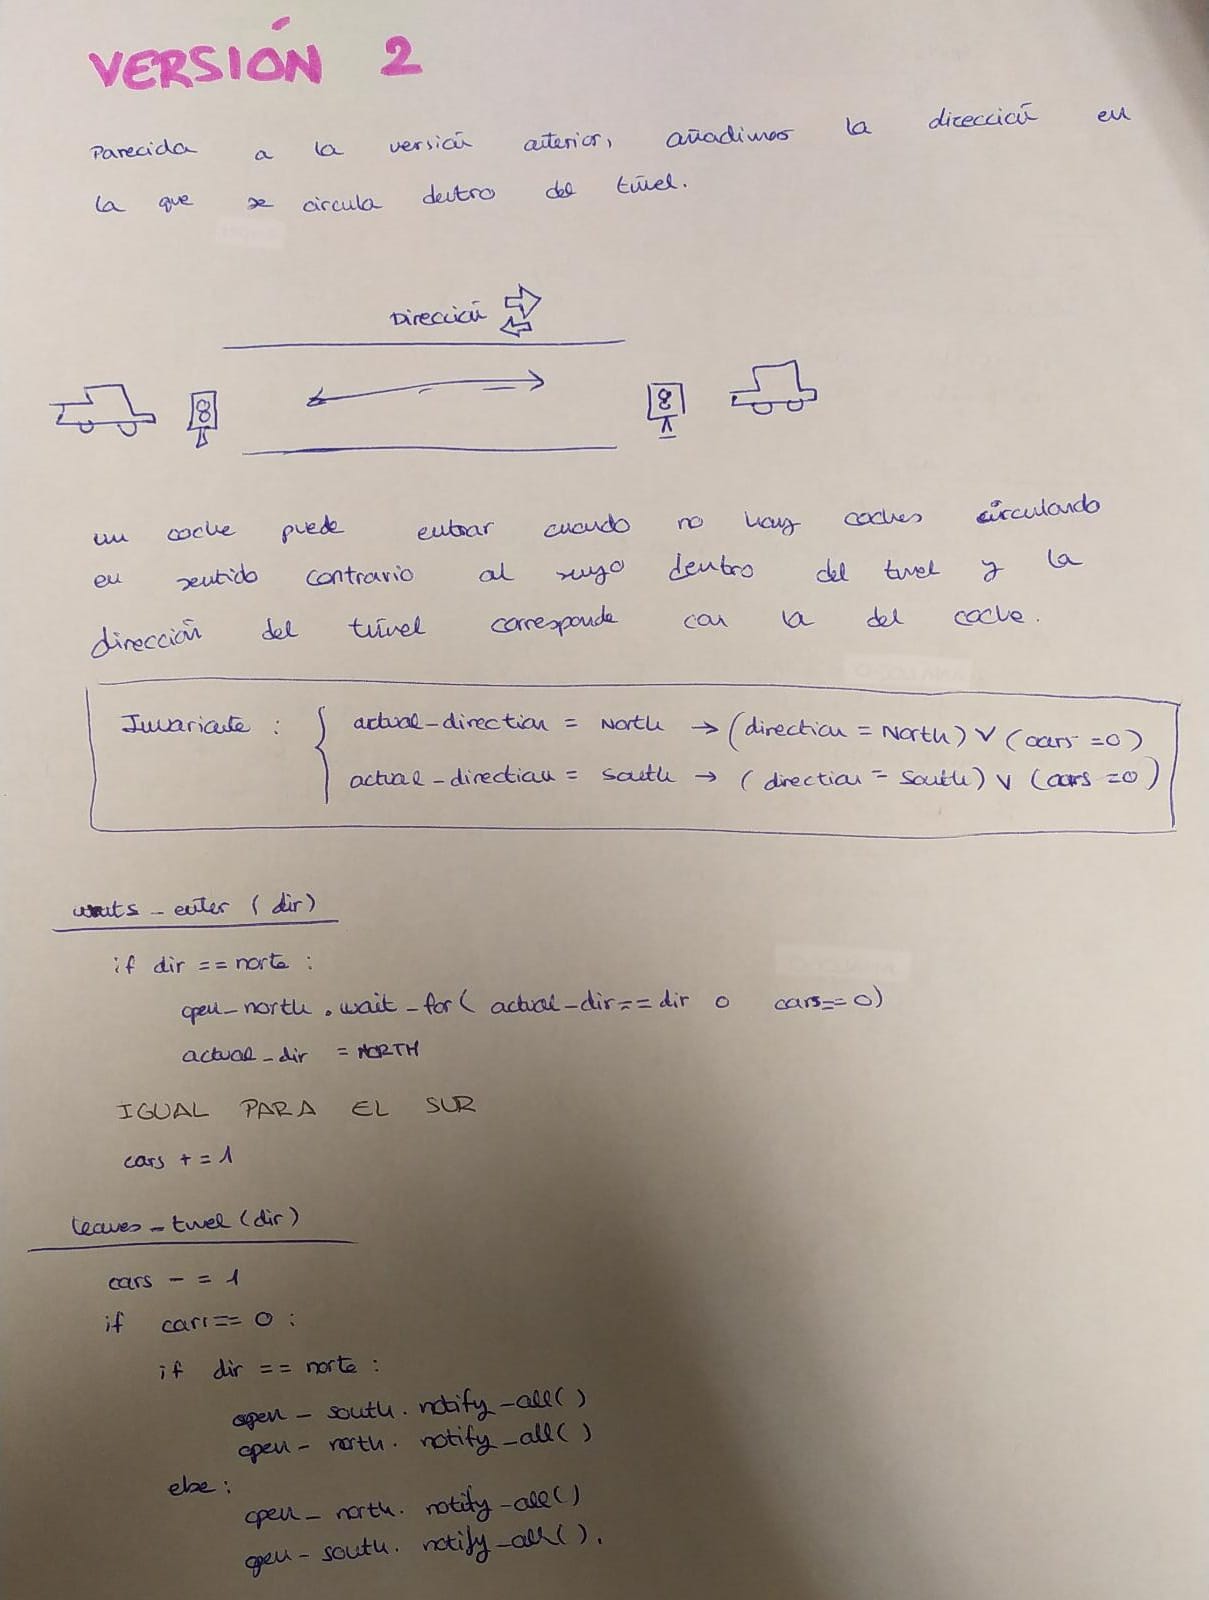 VERSIÓN 2
Parecida a la versión anterior, añadimos la dirección en
la que se circula dentro del túnel.
Dirección
un coche puede entrar cuando no hay coches circulando
en sentido contrario al suyo dentro del tunel y la
dirección del túnel corresponde con la del coche.
Invariante : { actual-direction = North → (direction = North) ∨ (cars = 0)
actual-direction = South → (direction = South) ∨ (cars = 0)
wants_enter (dir)
if dir == norte :
open_north.wait_for( actual_dir == dir o cars == 0)
actual_dir = NORTH
IGUAL PARA EL SUR
cars += 1
leaves_tunel (dir)
cars -= 1
if cars == 0 :
if dir == norte :
open_south.notify_all()
open_north.notify_all()
else :
open_north.notify_all()
open_south.notify_all().